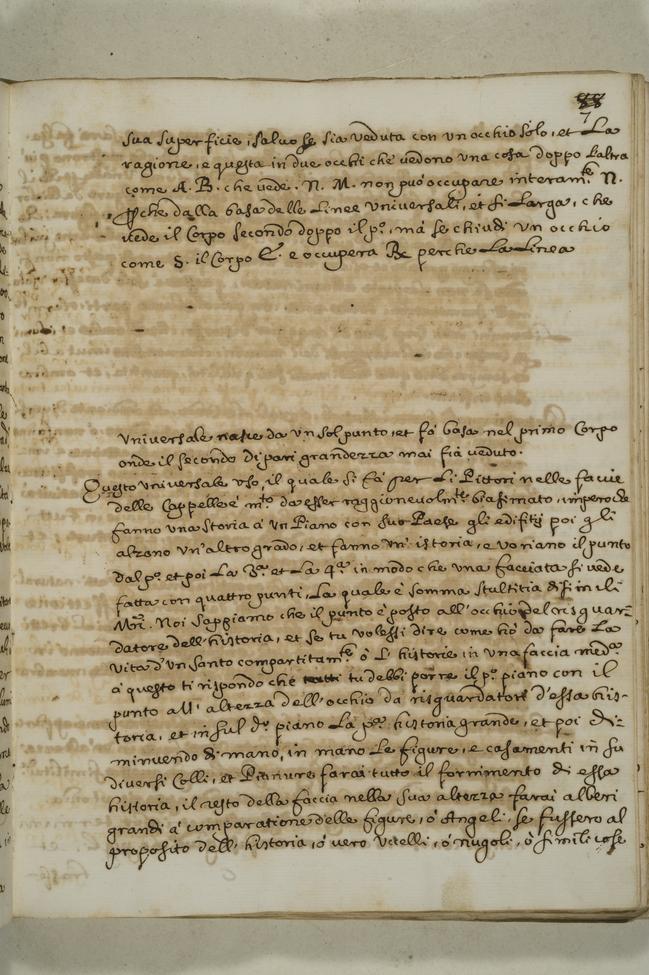 88
7
sua superficie, salvo se sia veduta con un occhio solo, et La
ragione, e questa in due occhi che vedono una cosa doppo L'altra
come A. B. che vede. N. M. non può occupare interam.te N.
che dalla basa delle Linee Universali, et si Larga, che
vede il Corpo secondo doppo il p.o, ma se chiudi un occhio
come S. il Corpo E. e occupera R. perche La Linea
Universale nasce da un sol punto, et fa basa nel primo Corpo
onde il secondo di pari grandezza mai fia veduto.
Questo universale uso, il quale si fa per Li Pittori nelle facie
delle Cappelle è m.to da esser raggionevolm.te biasimato, imperoche
fanno una storia a un Piano con suo Paese gli edifitij poi gli
alzano un'altro grado, et fanno un' istoria, e variano il punto
dal p.o et poi La 3.a et La 4.a in modo che una facciata si vede
fatta con quattro punti, La quale è somma stultitia di simili
M.ri. Noi sappiamo che il punto è posto all'occhio del risguar-
datore dell'historia, et se tu volessi dire come hò da fare La
vita d'un santo compartitam.te ò L' historie in una faccia med.a
a questo ti rispondo che tu debbi porre il p.o piano con il
punto all' altezza dell'occhio da risguardatori d'essa his-
toria, et in sul d.o piano La p.a historia grande, et poi di-
minuendo di mano, in mano Le figure, e casamenti in su
diversi Colli, et Pianure farai tutto il fornimento di essa
historia, il resto della faccia nella sua altezza farai alberi
grandi a comparatione delle figure, ò Angeli, se fussero al
proposito dell' historia, ò vero Uccelli, ò nugoli, ò simili cose